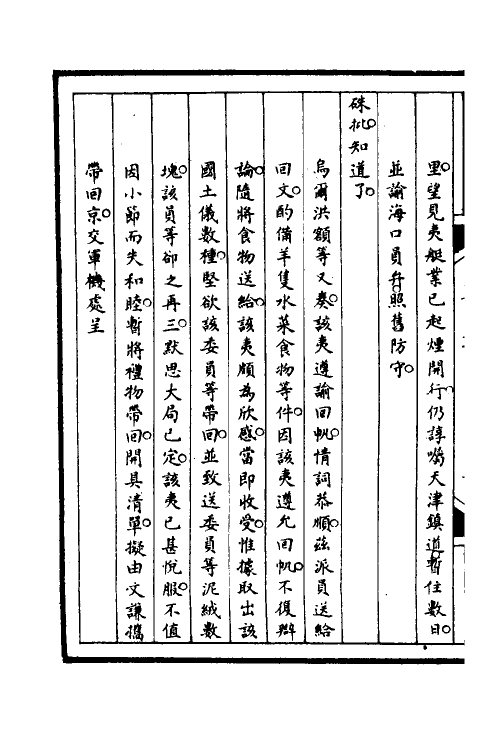 里。望見夷艇業已起煙開行。仍諄囑天津鎮道。暫住數日。
並諭海口員弁。照舊防守。
硃批。知道了。
烏爾洪額等又奏。該夷遵諭回帆。情詞恭順。茲派員送給
回文。酌備羊隻水菜食物等件。因該夷遵允回帆。不復辯
論。隨將食物送給。該夷頗為欣感。當即收受。惟據取出該
國土儀數種。堅欲該委員等帶回。並致送委員等泥絨數
塊。該員等卻之再三。默思大局已定。該夷已甚悅服。不值
因小節而失和睦。暫將禮物帶回。開具清單。擬由文謙攜
帶回京。交軍機處呈